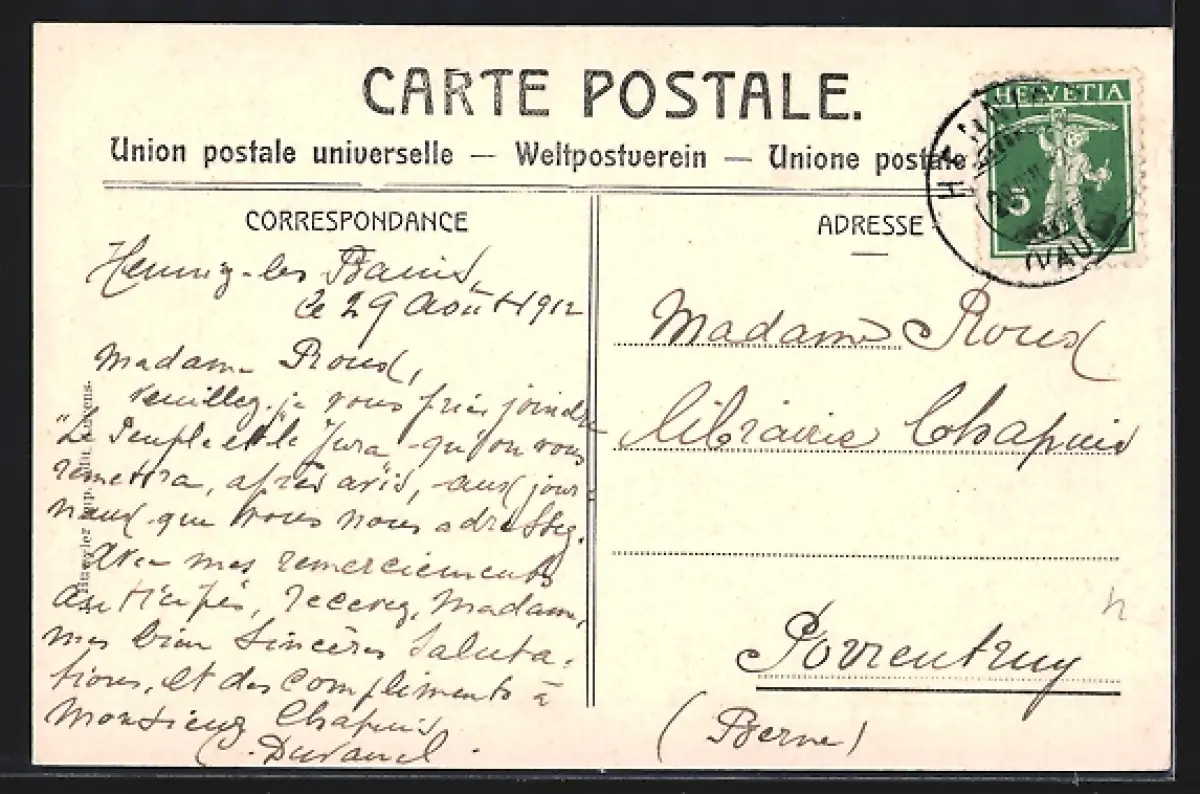 CARTE POSTALE.
Union postale universelle — Weltpostverein — Unione postale
CORRESPONDANCE
Henniez-les Bains,
le 29 Août 1912
Madame Roux,
Veuillez, je vous prie, joindre
"Le Peuple" et "le Jura" qu'on vous
remettra, après avis, aux jour-
naux que vous nous adressez.
Avec mes remerciements
anticipés, recevez, Madame,
mes bien sincères saluta-
tions, et des compliments à
Monsieur Chapuis.
C. Duvanel.
ADRESSE
Madame Roux
librairie Chapuis
Porrentruy
(Berne)
HELVETIA
5
HENNIEZ
(VAUD)